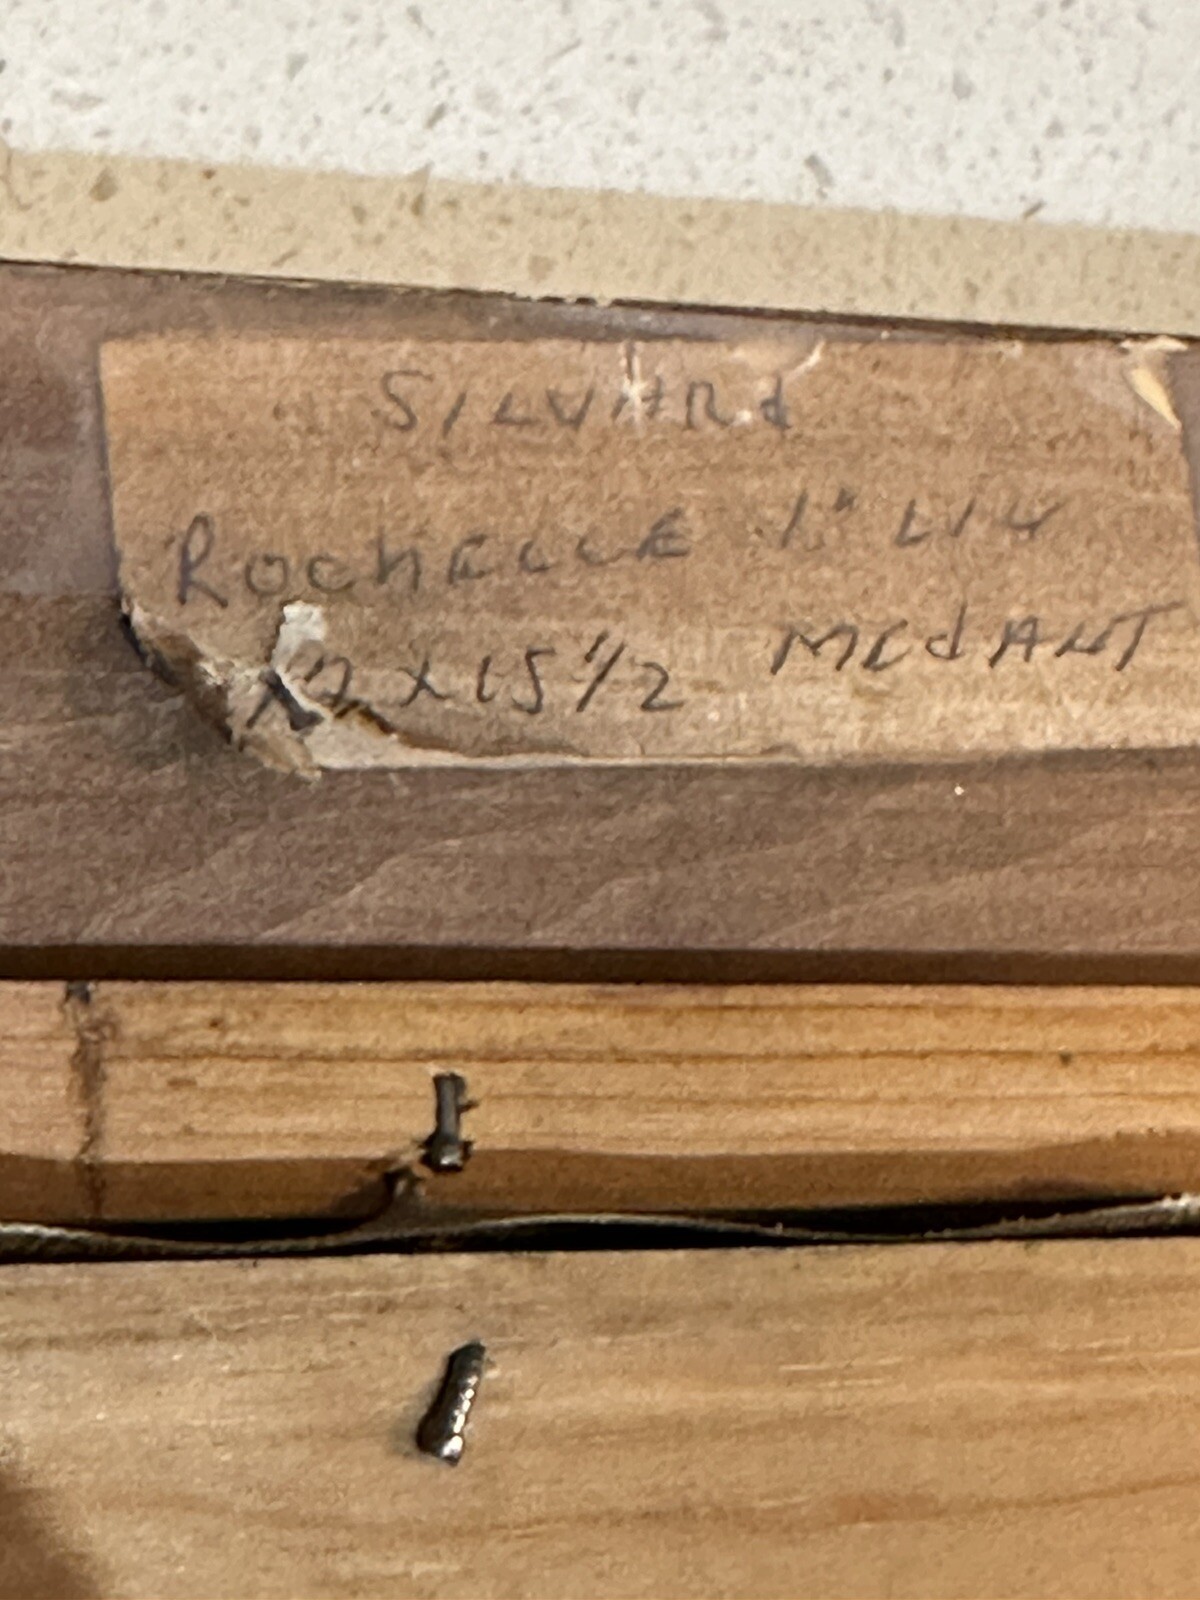 SILVARd
ROCHELLE 1" LIN
x 15 1/2 MEdANT